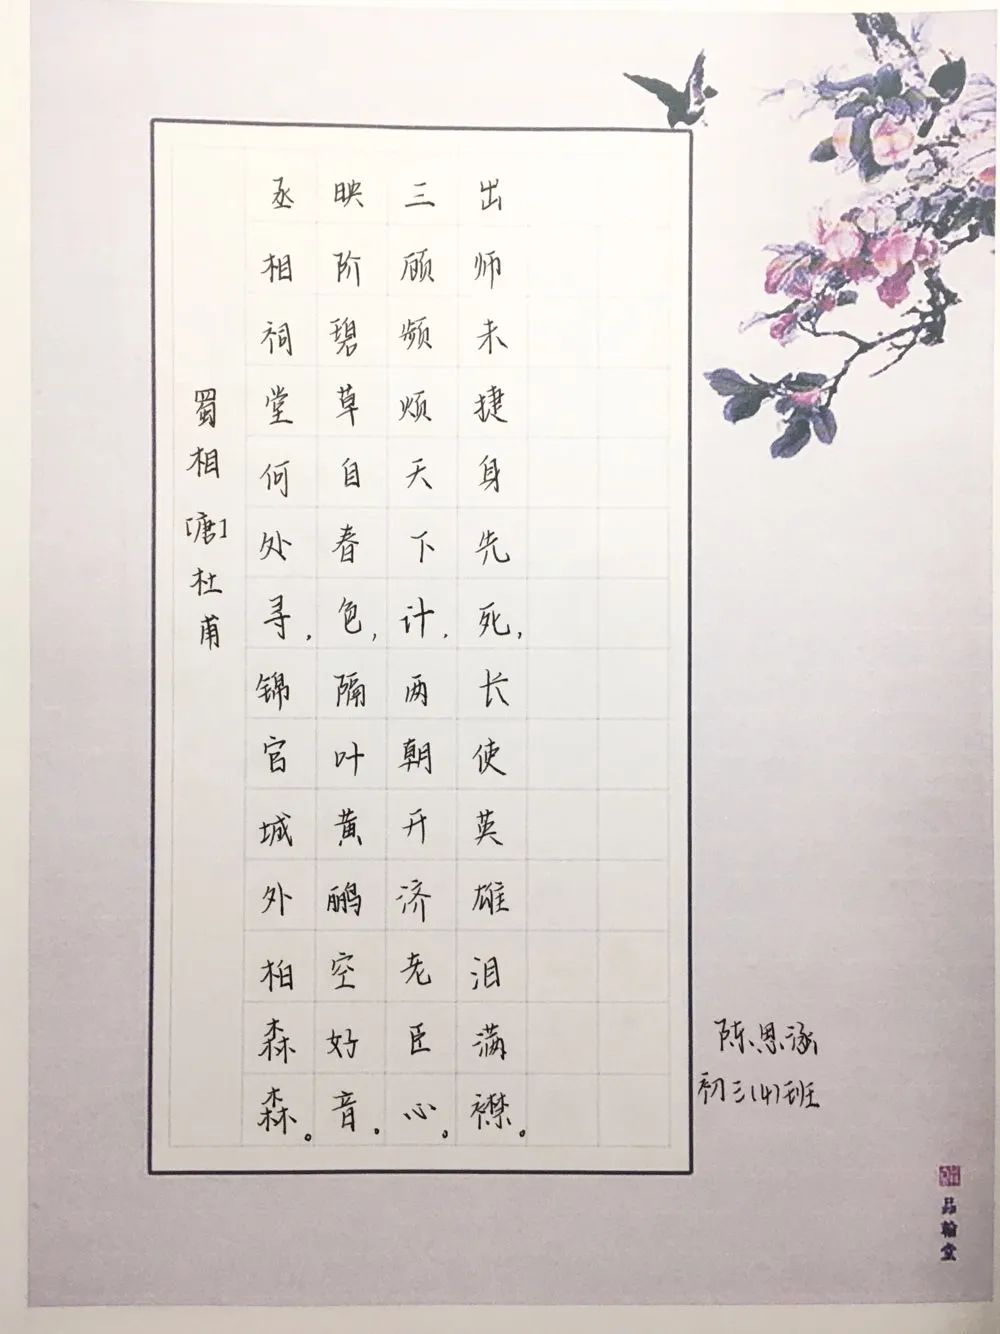 蜀相 [唐] 杜甫
丞相祠堂何处寻,锦官城外柏森森。
映阶碧草自春色,隔叶黄鹂空好音。
三顾频烦天下计,两朝开济老臣心。
出师未捷身先死,长使英雄泪满襟。
陈恩涵
初三(4)班
品翰堂